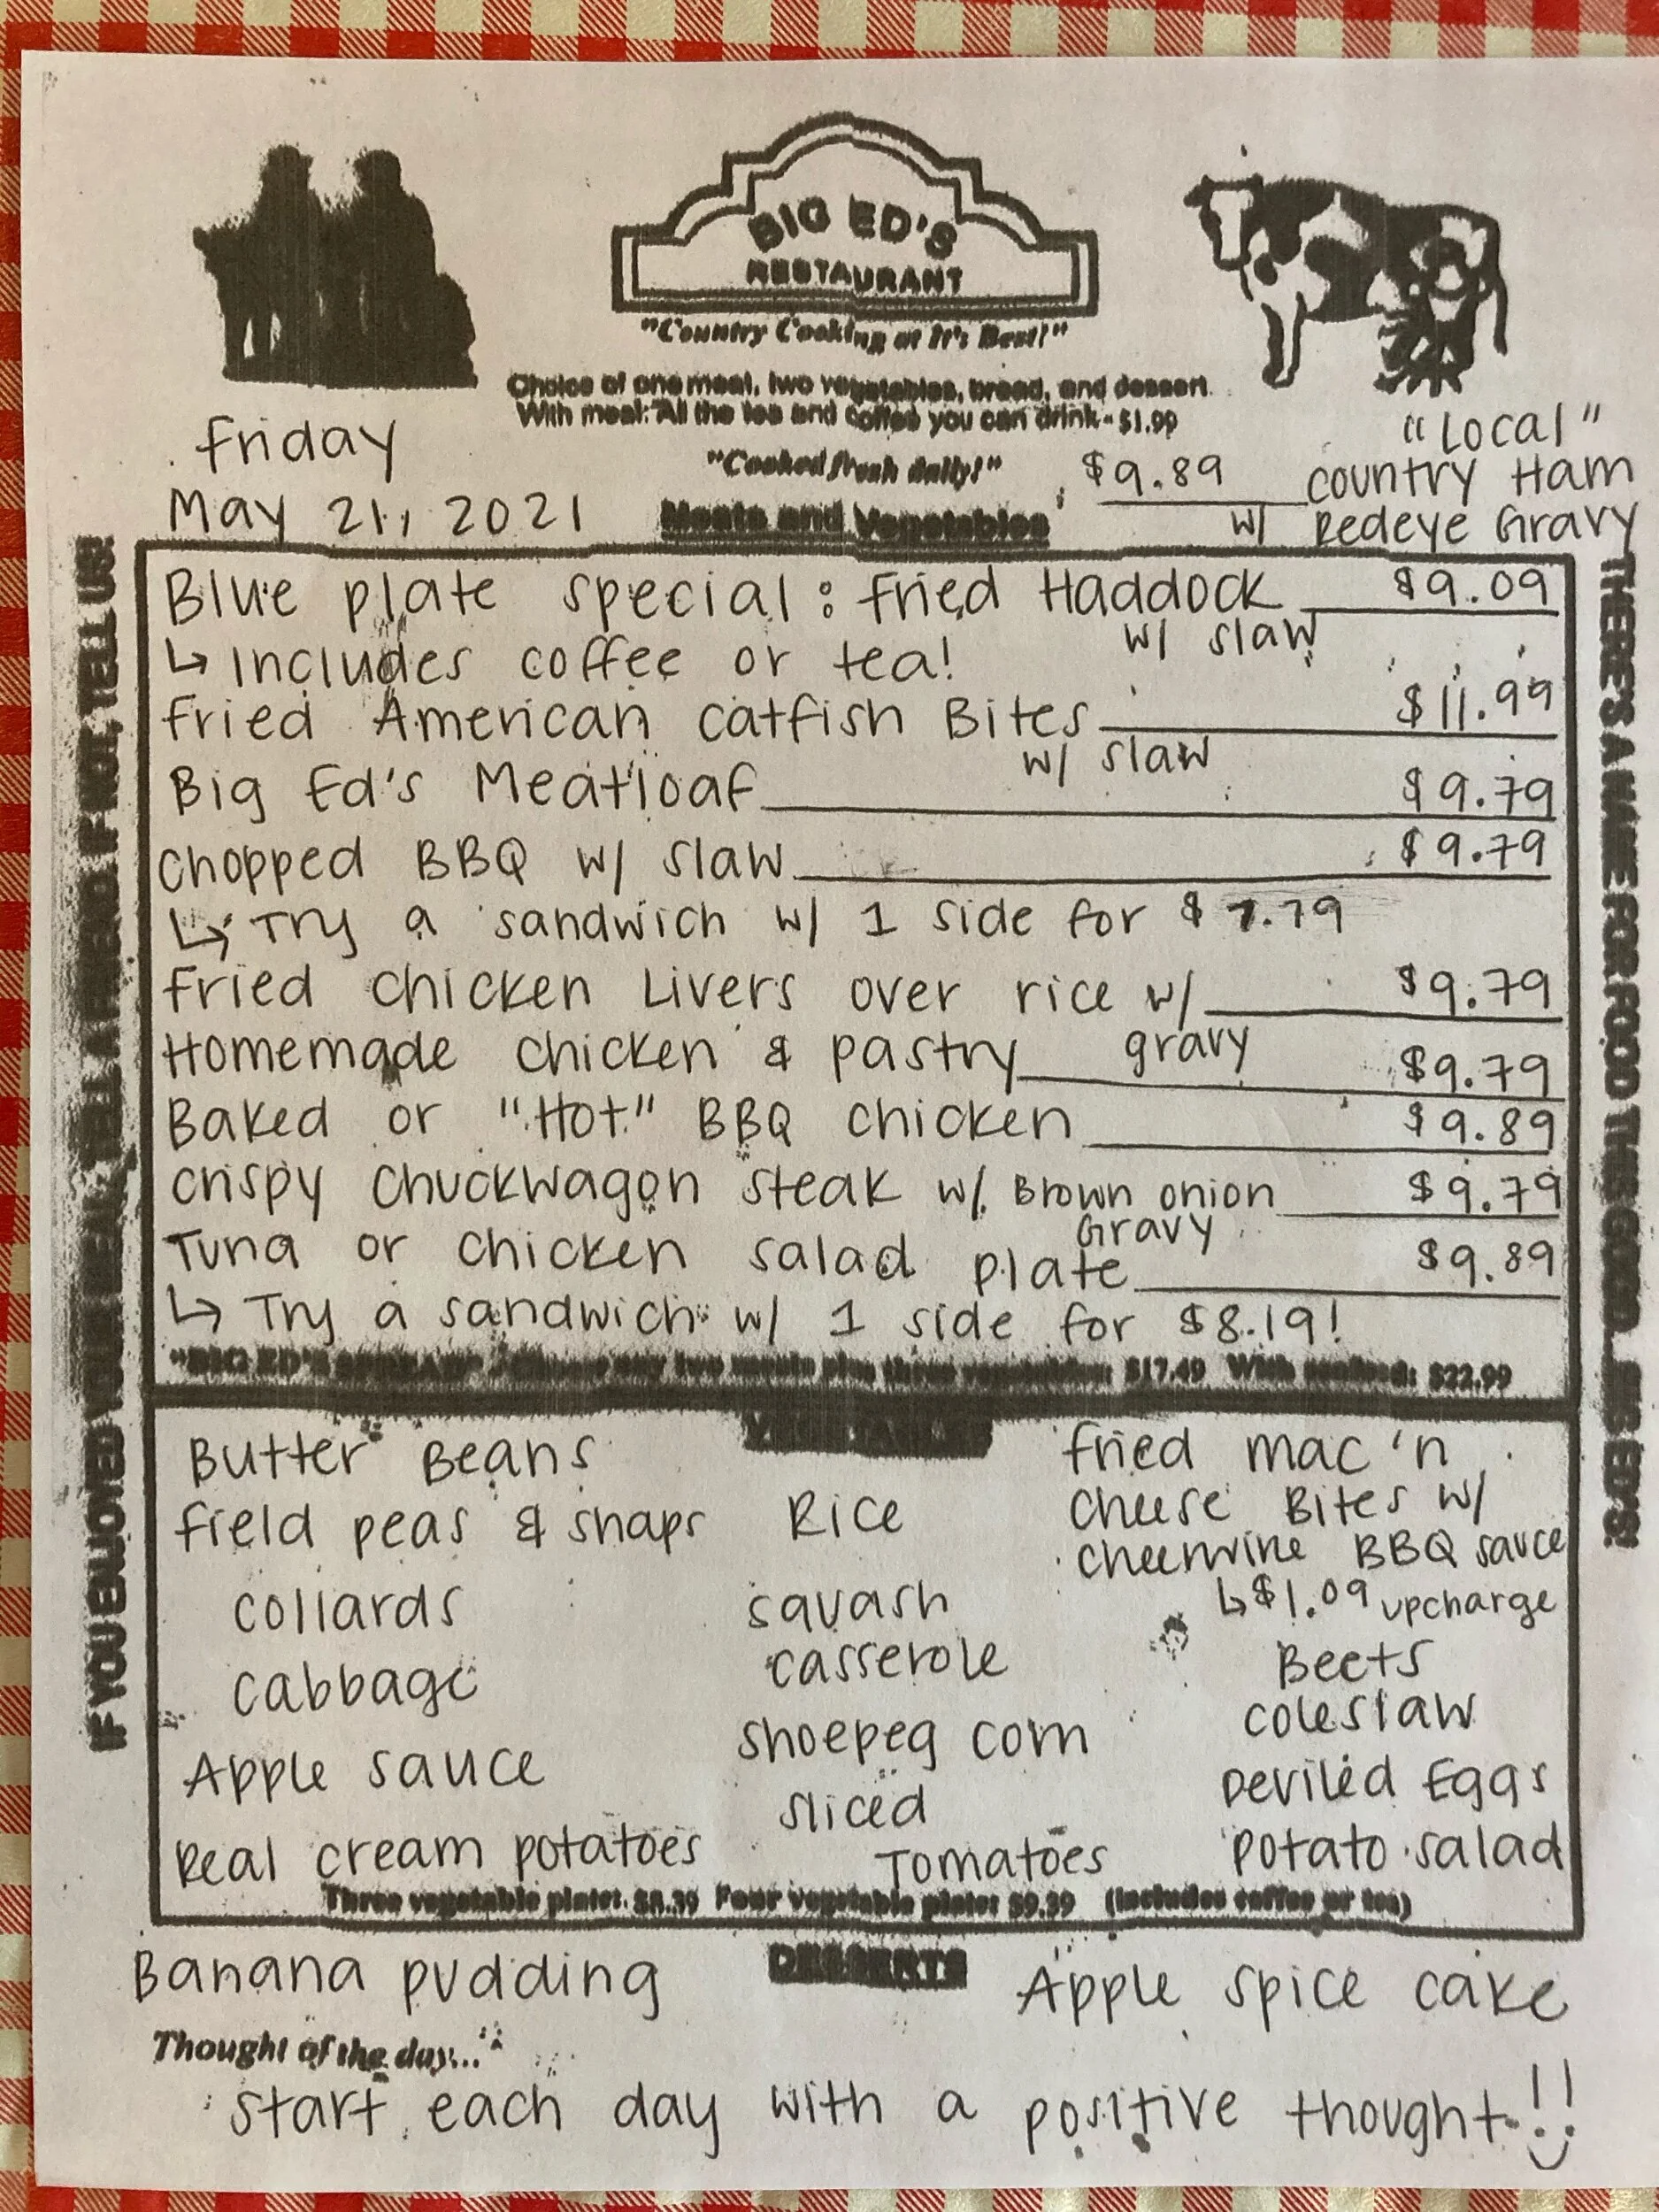 BIG ED'S
RESTAURANT
"Country Cooking at It's Best!"
Choice of one meat, two vegetables, bread, and dessert
With meal: All the tea and coffee you can drink - $1.99
"Cooked fresh daily!"
Friday
May 21, 2021
Meats and Vegetables
"Local"
$9.89 Country Ham
w/ Redeye Gravy
Blue plate special: Fried Haddock $9.09
w/ slaw
↳ Includes coffee or tea!
Fried American Catfish Bites $11.99
w/ slaw
Big Ed's Meatloaf $9.79
Chopped BBQ w/ slaw $9.79
↳ Try a sandwich w/ 1 side for $7.79
Fried Chicken Livers over rice w/ $9.79
gravy
Homemade Chicken & Pastry $9.79
Baked or "Hot" BBQ Chicken $9.89
Crispy Chuckwagon Steak w/ Brown onion $9.79
Gravy
Tuna or Chicken salad plate $9.89
↳ Try a sandwich w/ 1 side for $8.19!
"BIG ED'S SPREAD" Choose any two meats plus three vegetables: $17.49 With seafood: $22.99
VEGETABLES
Butter Beans
Field peas & snaps
Collards
Cabbage
Apple sauce
Real cream potatoes
Rice
Squash
casserole
Shoepeg corn
Sliced
Tomatoes
Fried mac 'n
Cheese Bites w/
Cheerwine BBQ sauce
↳ $1.09 upcharge
Beets
Coleslaw
Deviled Eggs
Potato salad
Three vegetable plate: $8.39 Four vegetable plate: $9.39 (Includes coffee or tea)
DESSERTS
Banana pudding
Apple spice cake
Thought of the day...
Start each day with a positive thought!!
IF YOU ENJOYED YOUR MEAL, TELL A FRIEND. IF NOT, TELL US!
THERE'S A NAME FOR FOOD THIS GOOD... IT'S ED'S!